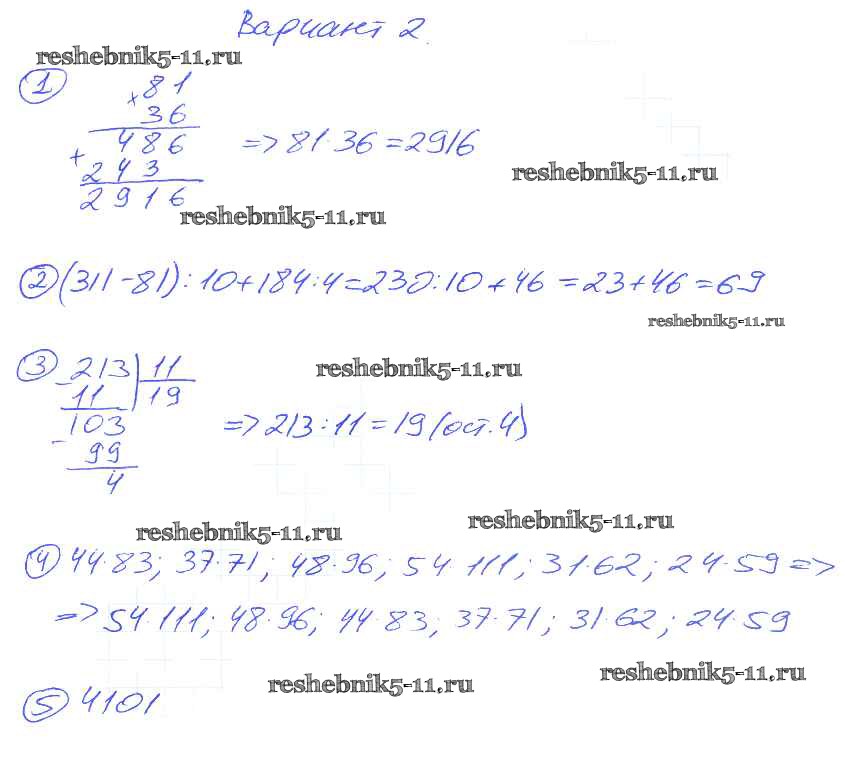 Вариант 2.
reshebnik5-11.ru
① × 81
36
486 => 81·36=2916
+ 243
reshebnik5-11.ru
2916
reshebnik5-11.ru
② (311-81):10+184:4=230:10+46=23+46=69
reshebnik5-11.ru
③ - 213 | 11
reshebnik5-11.ru
11 | 19
103 => 213:11=19 (ост.4)
- 99
4
reshebnik5-11.ru
reshebnik5-11.ru
④ 44·83; 37·71; 48·96; 54·111; 31·62; 24·59 =>
=> 54·111; 48·96; 44·83; 37·71; 31·62; 24·59
reshebnik5-11.ru
reshebnik5-11.ru
⑤ 4101